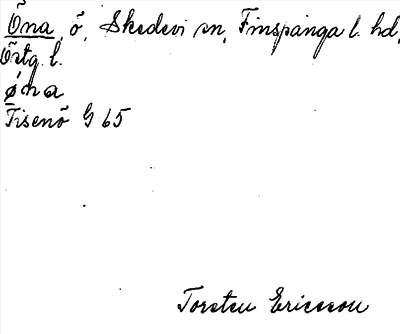 Öna, ö, Skedevi sn, Finspånga l. hd,
Östg. l.
øna
Tisenö G 65
Torsten Ericsson